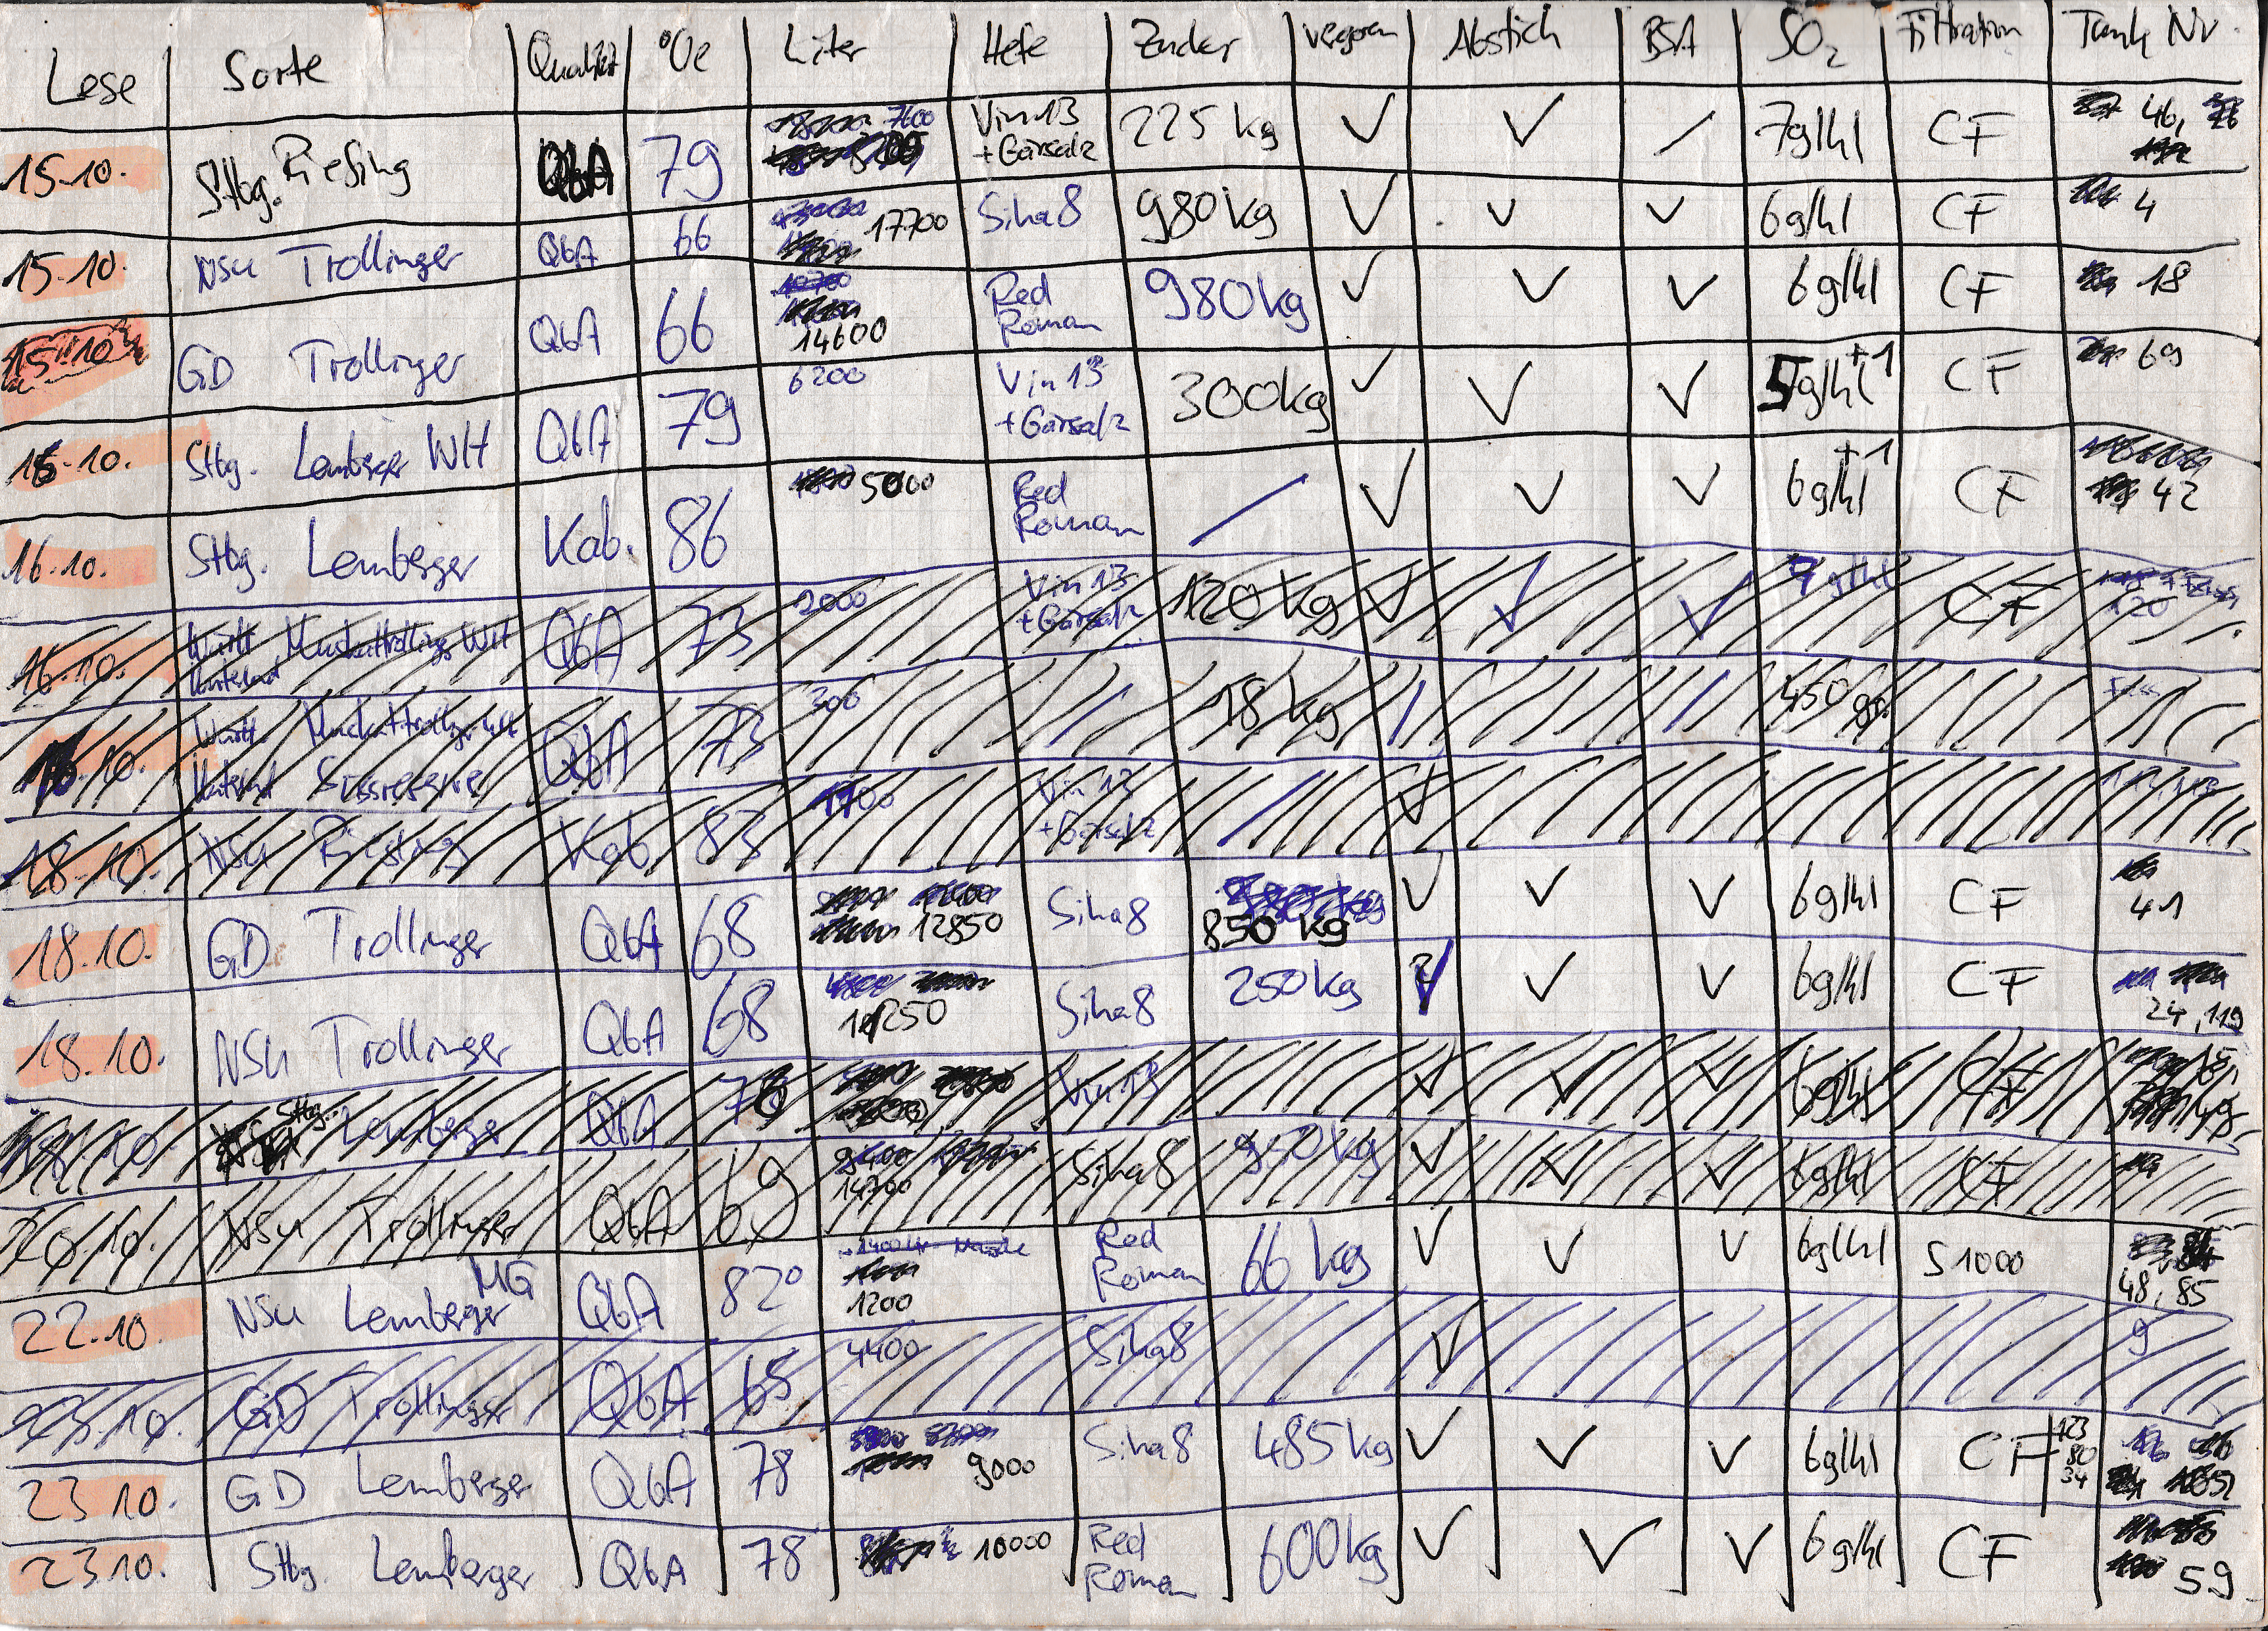 Lese Sorte Qualität °Oe Liter Hefe Zucker vergoren Abstich BSA SO₂ Filtration Tank Nr.
15.10. Stbg. Riesling QbA 79 7600 Vin 13 + Gärsalz 225 kg ✓ ✓ / 7g/hl CF 46,
15.10. NSU Trollinger QbA 66 17700 Siha 8 980 kg ✓ ✓ ✓ 6g/hl CF 4
15.10. GD Trollinger QbA 66 14600 Red Roman 980 kg ✓ ✓ ✓ 6g/hl CF 18
16.10. Stbg. Lemberger WH QbA 79 6200 Vin 13 + Gärsalz 300 kg ✓ ✓ ✓ 5g/hl +1 CF 69
16.10. Stbg. Lemberger Kab. 86 5000 Red Roman / ✓ ✓ ✓ 6g/hl +1 CF 42
16.10. Württ. Unterland Muskattrollinger WH QbA 73 2000 Vin 13 + Gärsalz 120 kg ✓ ✓ ✓ 7g/hl CF 120
16.10. Württ. Unterland Muskattrollinger WH Süssreserve QbA 73 300 / 18 kg / / 450 gr. Fass
18.10. NSU Riesling Kab 83 1700 Vin 13 + Gärsalz / ✓
18.10. GD Trollinger QbA 68 12850 Siha 8 850 kg ✓ ✓ ✓ 6g/hl CF 41
18.10. NSU Trollinger QbA 68 Siha 8 250 kg ✓ ✓ ✓ 6g/hl CF 24, 119
18.10. Stbg. Lemberger QbA 78 Vin 13 ✓ ✓ ✓ 6g/hl CF 49
20.10. NSU Trollinger QbA 69 14700 Siha 8 950 kg ✓ ✓ ✓ 6g/hl CF
22.10. NSU Lemberger MG QbA 82° 1200 Red Roman 66 kg ✓ ✓ ✓ 6g/hl S 1000 48, 85
23.10. GD Trollinger QbA 65 4400 Siha 8 ✓ 9
23.10. GD Lemberger QbA 78 9000 Siha 8 485 kg ✓ ✓ ✓ 6g/hl CF 123 80 34
23.10. Stbg. Lemberger QbA 78 10000 Red Roman 600 kg ✓ ✓ ✓ 6g/hl CF 59